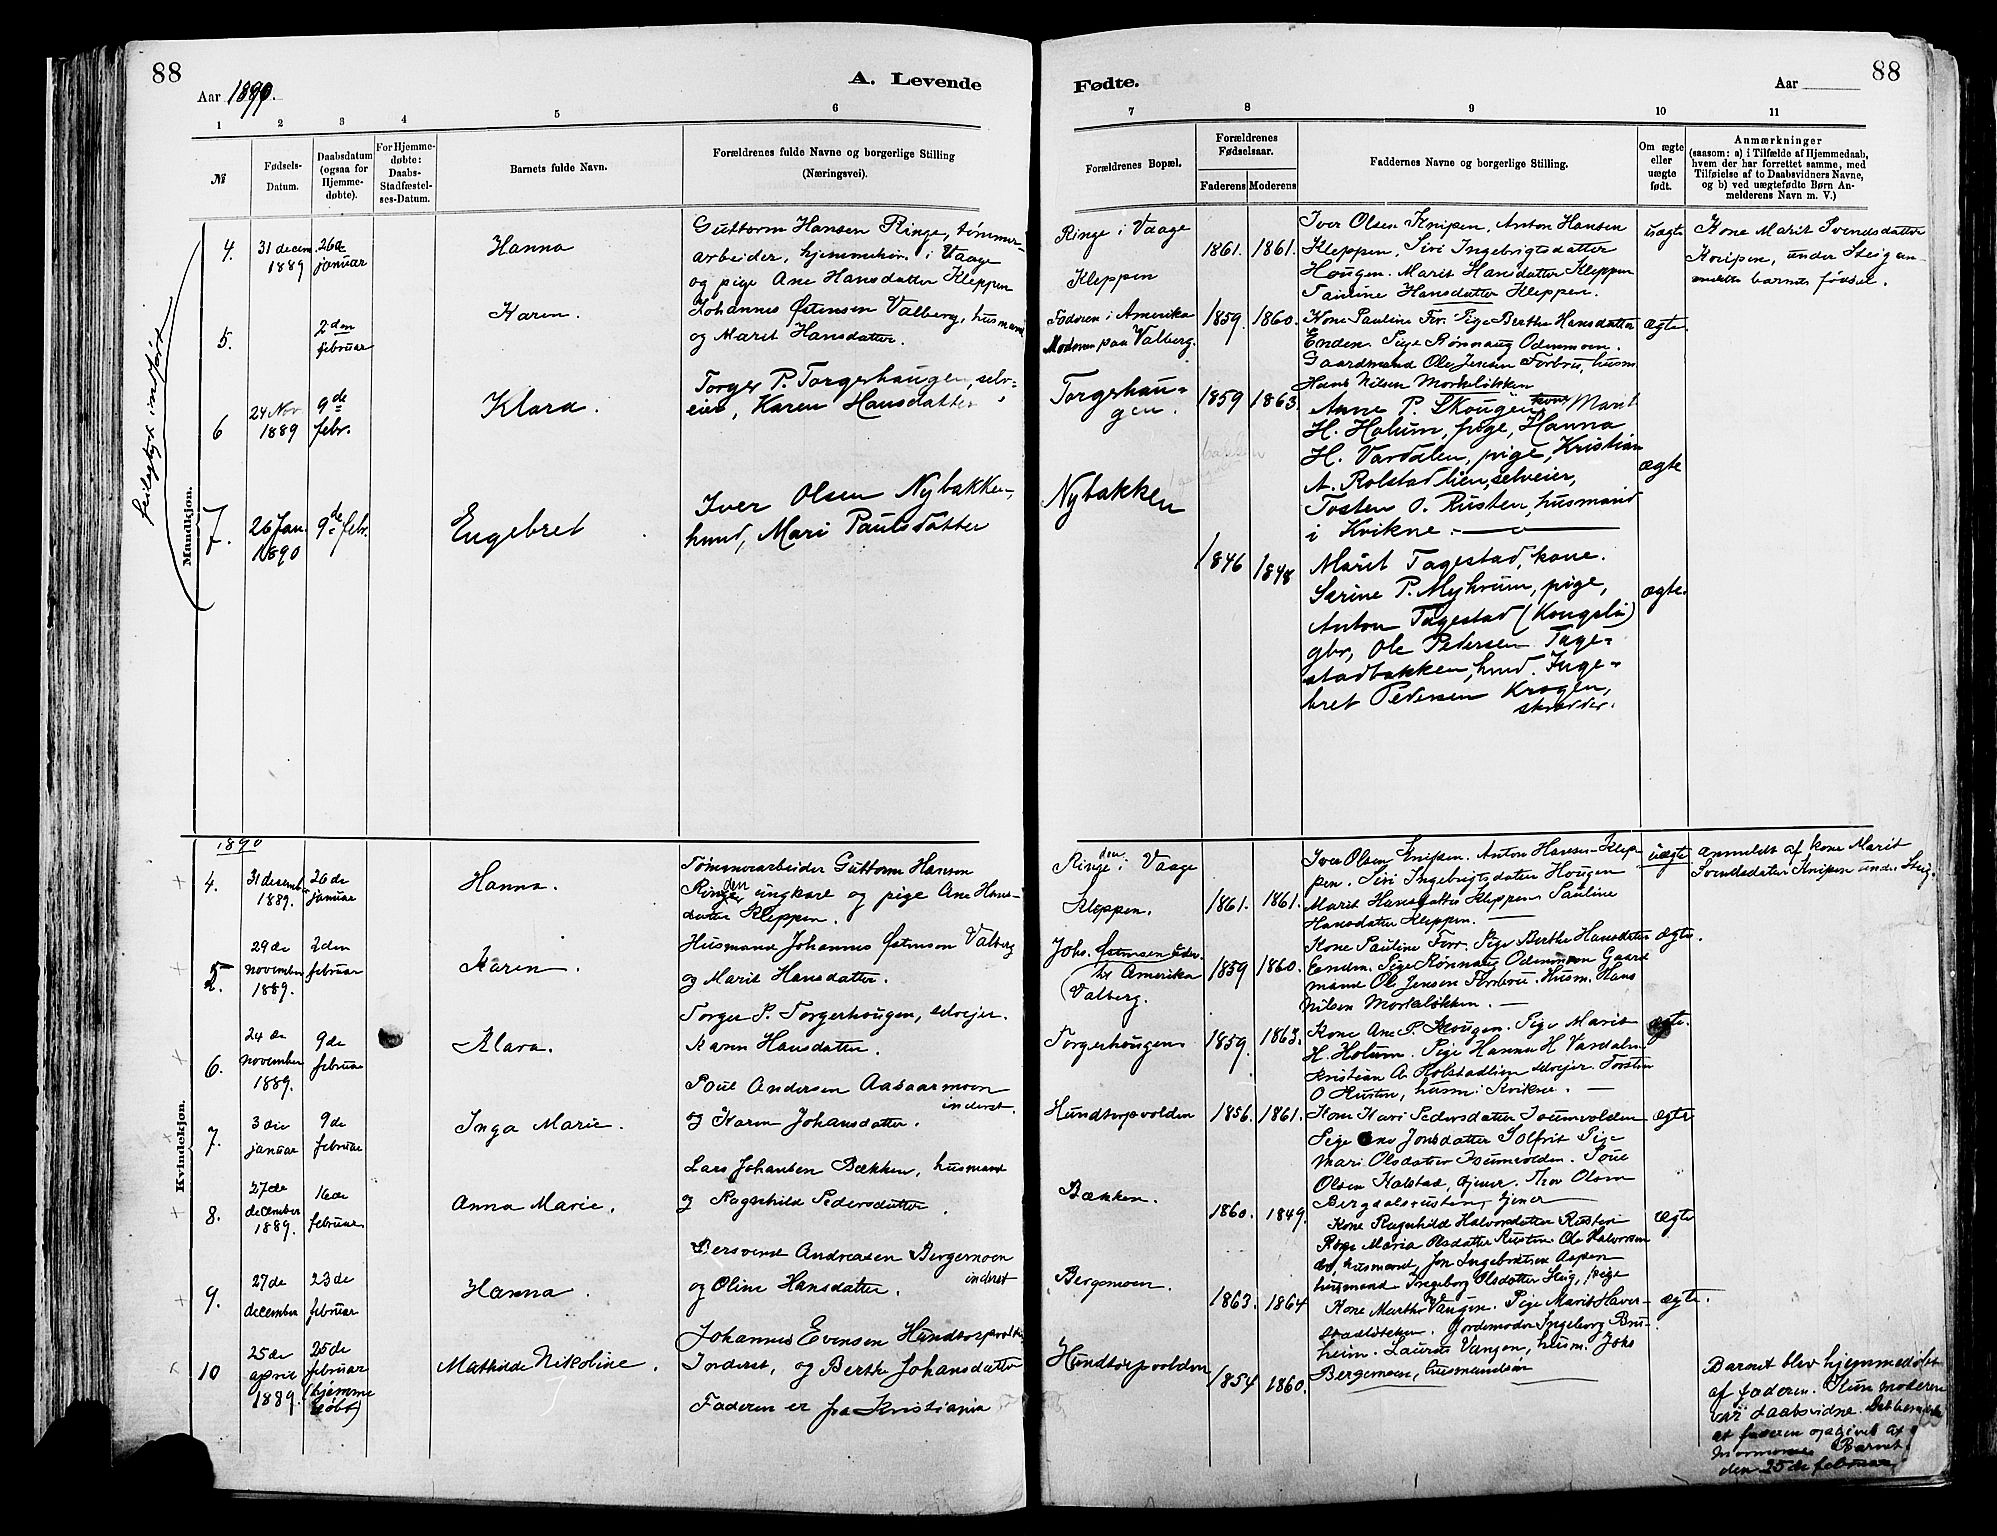 88
A. Levende
Aar 1890.
1 2 3 4 5 6
№
Fødsels-
Datum.
Daabsdatum
(ogsaa for
Hjemme-
døbte).
For Hjemme-
døbte:
Daabs-
Stadfæstel-
ses-Datum.
Barnets fulde Navn.
Forældrenes fulde Navne og borgerlige Stilling
(Næringsvei).
feilagtigt indført
Mandkjøn.
4.
31 decem
1889
26de
januar
Hanna
Guttorm Hansen Ringe, tømmer-
arbeider, hjemmehør. i Vaage
og pige Ane Hansdatter Kleppen
5.
2den
februar
Karen.
Johannes Østensen Valberg, husmand
og Marit Hansdatter.
6
24 Nov
1889
9de
febr.
Klara.
Torger P. Torgerhaugen, selv-
eier, Karen Hansdatter
7.
26 Jan.
1890
9de febr.
Engebret
Iver Olsen Nybakken,
hmd, Mari Paulsdatter
Kvindekjøn.
1890
4.
31 decemb
1889.
26de
januar
Hanna.
Tømmerarbeider Guttorm Hansen
Ringen ungkarl og pige Ane Hans-
datter Kleppen.
5.
29de
november
1889.
2den
februar
Karen.
Husmand Johannes Østenson Valberg
og Marit Hansdatter.
6.
24de
november
1889.
9de
februar
Klara.
Torger P. Torgerhougen, selvejer.
Karen Hansdatter.
7.
3die
januar
9de
februar
Inga Marie.
Poul Andersen Aasaarmoen
inderst.
og Karen Johansdatter.
8.
27de
december
1889.
16de
februar
Anna Marie.
Lars Johansen Bækken, husmand
og Ragnhild Pedersdatter.
9.
27de
december
23de
februar
Hanna.
Bersvend Andreasen Bergemoen
inderst
og Oline Hansdatter.
10
25de
april
1889.
25de
februar
(hjemme
døbt)
Mathilde Nikoline.
Johannes Evensen Hundtorpvolden
Inderst, og Berthe Johansdatter
Faderen er fra Kristiania
88
Fødte.
Aar
7 8 9 10 11
Forældrenes Bopæl.
Forældrenes
Fødselsaar.
Faderens Moderens
Faddernes Navne og borgerlige Stilling.
Om ægte
eller
uægte
født.
Anmærkninger
(saasom: a) i Tilfælde af Hjemmedaab,
hvem der har forrettet samme, med
Tilføielse af to Daabsvidners Navne,
og b) ved uægtefødte Børn An-
melderens Navn m. V.)
Ringe i Vaage
Kleppen
1861. 1861.
Iver Olsen Knipen. Anton Hansen
Kleppen. Siri Ingebrigtsdatter
Hougen. Marit Hansdatter Kleppen
Pauline Hansdatter Kleppen.
uægte
Kone Marit Svendsdatter
Knipen, under Steig an-
meldte barnets fødsel.
Faderen i Amerika
Moderen paa Valberg.
1859. 1860.
Kone Pauline Forr. Pige Berthe Hansdatter
Enden. Pige Rønnaug Odenmoen.
Gaardmand Ole Jensen Forbru, husm
Hans Nilsen Morkeløkken
ægte
Torgerhau-
gen.
1859 1863.
Anne P. Skougen, kone, Marit
H. Holum, pige, Hanna
H. Vardalen, pige, Kristian
A. Rolstadlien, selveier,
Tosten O. Rusten, husmand
i Kvikne.
ægte
Nybakken
1846 1848
Marit Tagestad, kone.
Serine P. Myhrum, pige,
Anton Tagestad (Kongsli)
gbr, Ole Pedersen Tage-
stadbakken, hmd. Inge-
bret Pedersen Krogen,
skrædder.
ægte.
Ringeden i Vaage
Kleppen.
1861. 1861.
Iver Olsen Knipen. Anton Hansen Klep-
pen. Siri Ingebrigtsdatter Hougen
Marit Hansdatter Kleppen Pauline
Hansdatter Kleppen.
uægte
anmeldt af kone Marit
Svendsdatter Knipen under Steig.
Johs. Østensen
Amerika
Valberg.
1859 1860.
Kone Pauline Forr. Pige Berthe Hansdatter
Enden. Pige Rønnaug Odenmoen Gaard
mand Ole Jensen Forbru. Husm. Hans
Nilsen Morkeløkken.
ægte.
Torgerhougen
1859. 1863.
Kone Ane P. Skougen. Pige Marit
H. Holum. Pige Hanna H Vardalen
Kristian A. Rolstadlien selvejer. Torsten
O Rusten, husm. i Kvikne.
ægte.
Hundtorpvolden
1856. 1861.
Kone Mari Pedersdatter
Pige Ane Jonsdatter Solfrit Pige
Mari Olsdatter Poul
Olsen Kalstad, tjener. Olsen
tjener
ægte
Bækken.
1860. 1849.
Kone Ragnhild Halvorsdatter Rusten
Maria Olsdatter Rusten Ole Halvorsen
husmand, Jon Ingebretsen Aspen
husmand Ingeborg Olsdatter Steig, pige
ægte
Bergemoen.
1863. 1864
Kone Marthe Vangen. Pige Marit Haver-
stadløkken. Gordemoder Ingeborg Bru-
heim. Laurits Vangen, husm. Johs
Bergemoen, husmandsøn
ægte.
Hundtorpvolden
1854 1860.
Barnet blev hjemmedøbt
af faderen. Kun moderen
var daabsvidne.
at faderen opgivet af
Barnet
den 25de februar